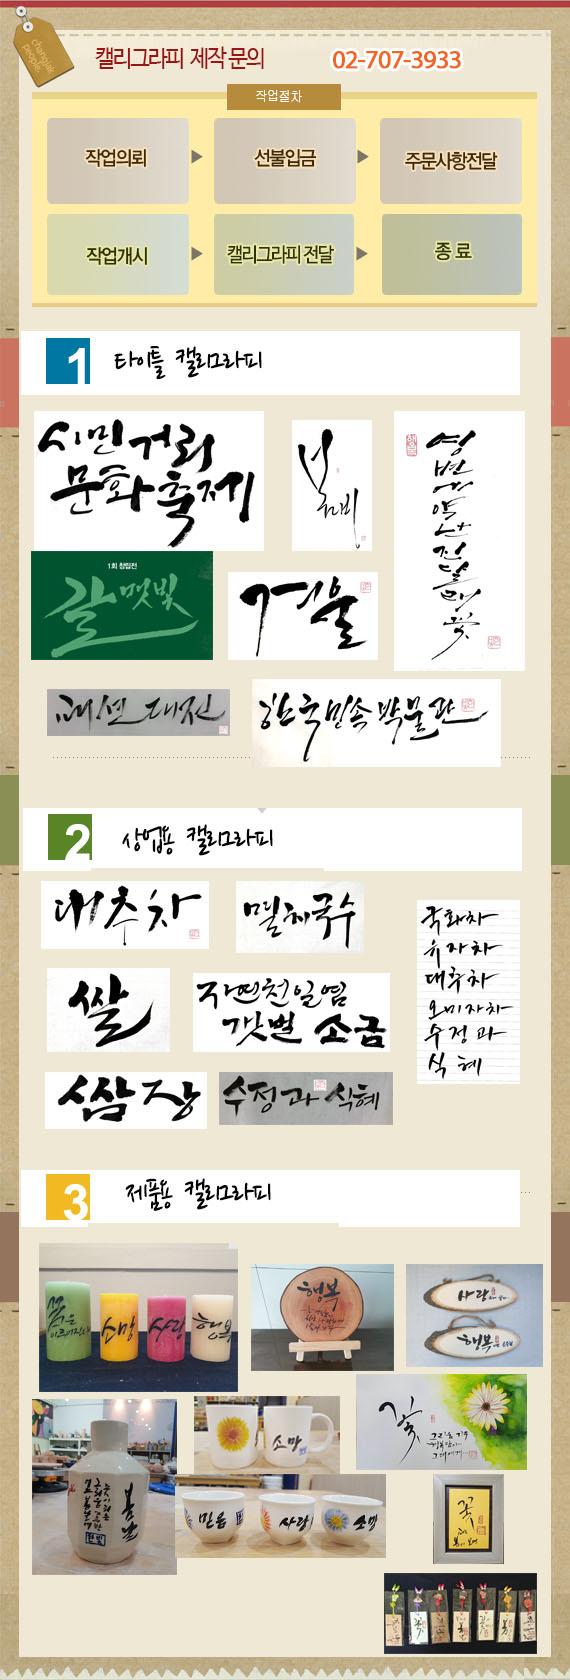 changjak
people.
캘리그라피 제작 문의
02-707-3933
작업절차
작업의뢰
선불입금
주문사항전달
작업개시
캘리그라피 전달
종료
1 타이틀 캘리그라피
시민거리
문화축제
봄비
영변에약산진달래꽃
1회 창립전
갈멧빛
겨울
패션대전
한국민속박물관
2 상업용 캘리그라피
대추차
멸치국수
국화차
유자차
대추차
오미자차
수정과
식혜
쌀
자연천일염
갯벌 소금
쌈장
수정과 식혜
3 제품용 캘리그라피
꽃은
소망
사랑
행복
행복
사랑
행복
소망
꽃
그대에게
봄날
믿음
사랑
소망
꽃